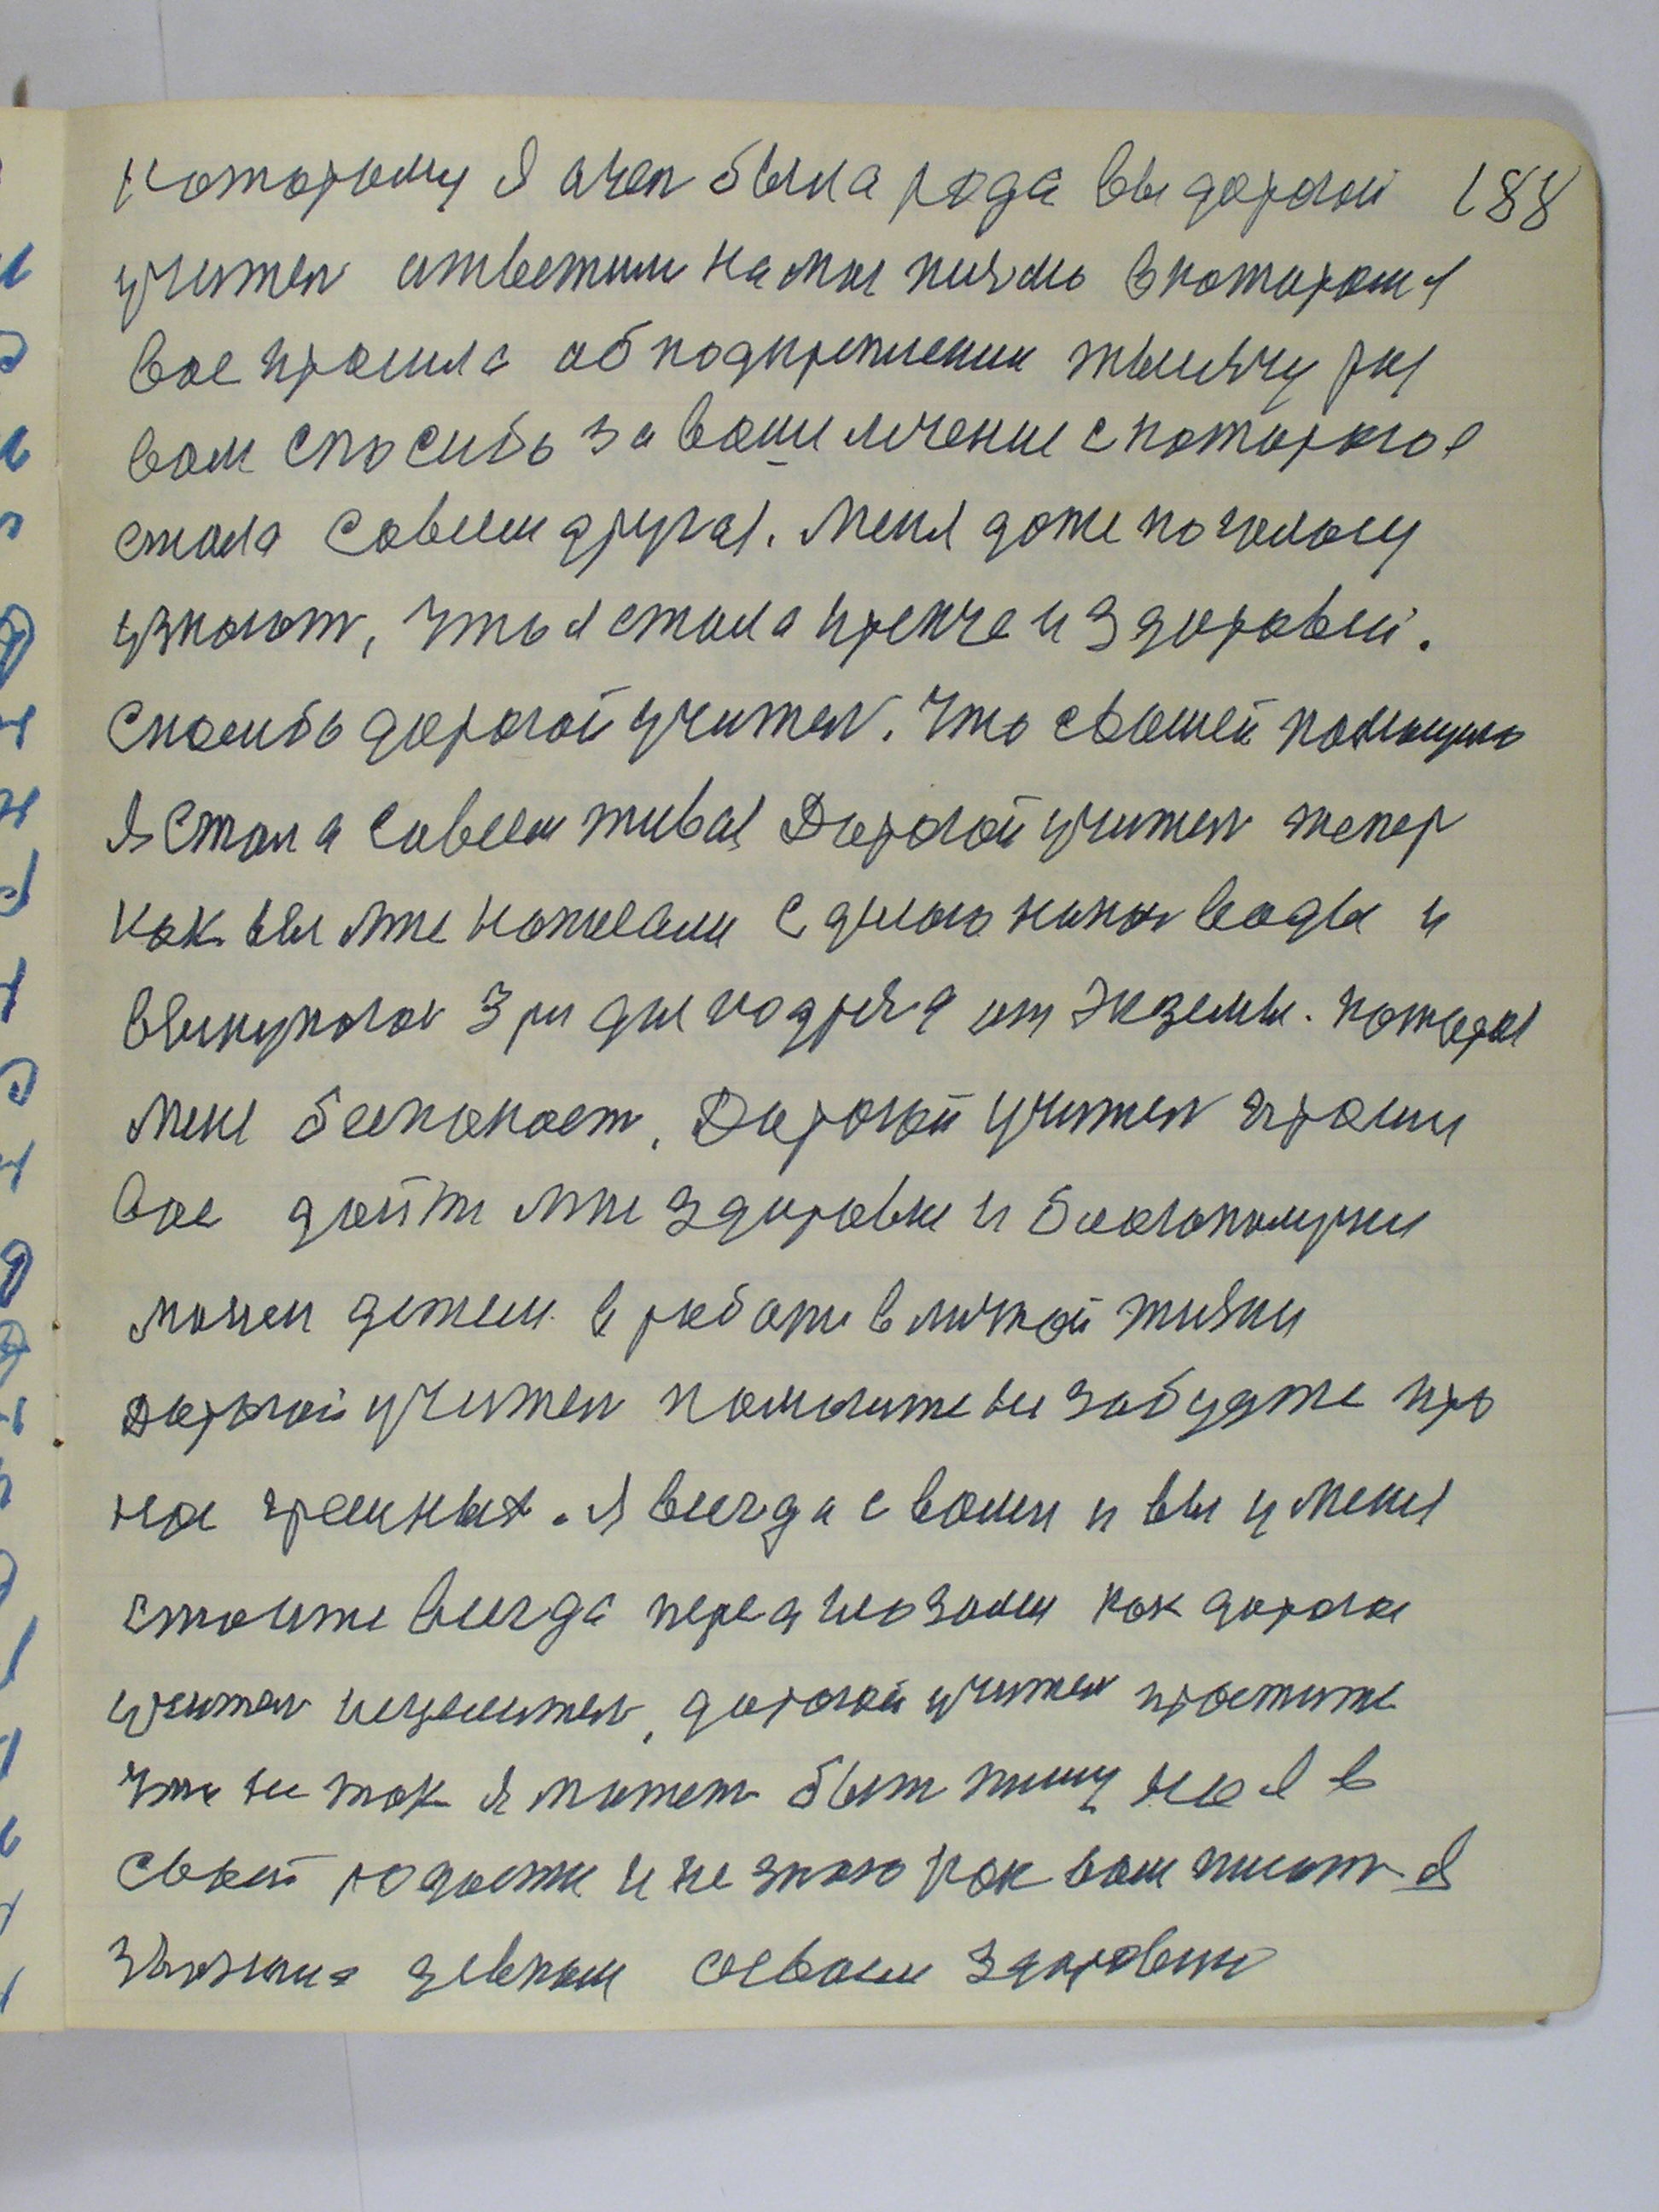 которому я очен была рада вы дорогой 188
учител ответили на мое писмо в котором я
вас просила об подкреплении тысячу раз
вам спосибо за ваши лечение с которого я
стала совсем другая. Меня даже по голосу
узнают, что я стала крепче и здоровей.
Спасибо дорогой учител. Что с вашей помощию
Я стала совсем живая Дорогой учител тепер
как вы мне написали сделаю воды и
выкупаюс 3 ри дня подряд от Экземы. которая
меня беспокоет. Дорогой учител прошу
вас дайти мне здоровье и благополучие
моием детям в работи в личной жизни
Дорогой учител помогите не забудте про
нас грешных. Я всегда с вами и вы у меня
стоите всегда перед глазами как дорогой
учител исцелител, дорогой учител простите
что не так я может быт пишу но я в
своей радости и не знаю как вам писат Я
здоровию